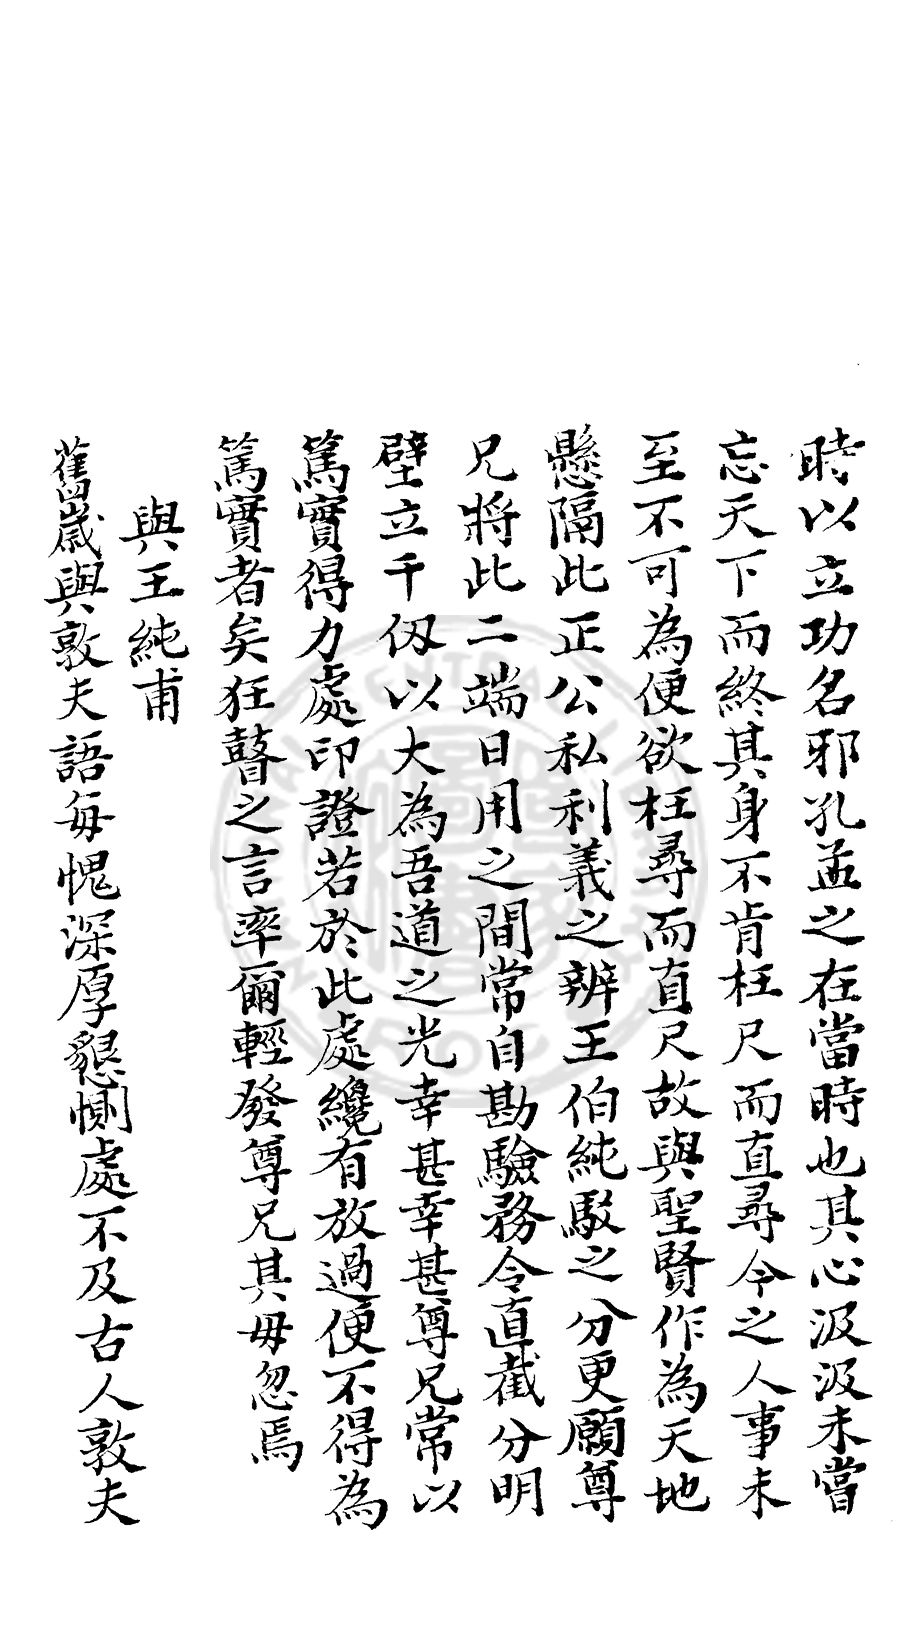 時以立功名邪孔孟之在當時也其心汲汲未嘗
忘天下而終其身不肯枉尺而直尋今之人事未
至不可為便欲枉尋而直尺故與聖賢作為天地
懸隔此正公私利義之辨王伯純駁之分更願尊
兄將此二端日用之間常自勘驗務令直截分明
壁立千仭以大為吾道之光幸甚幸甚尊兄常以
篤實得力處印證若於此處纔有放過便不得為
篤實者矣狂瞽之言率爾輕發尊兄其毋忽焉
與王純甫
舊歲與敦夫語每愧深厚懇惻處不及古人敦夫